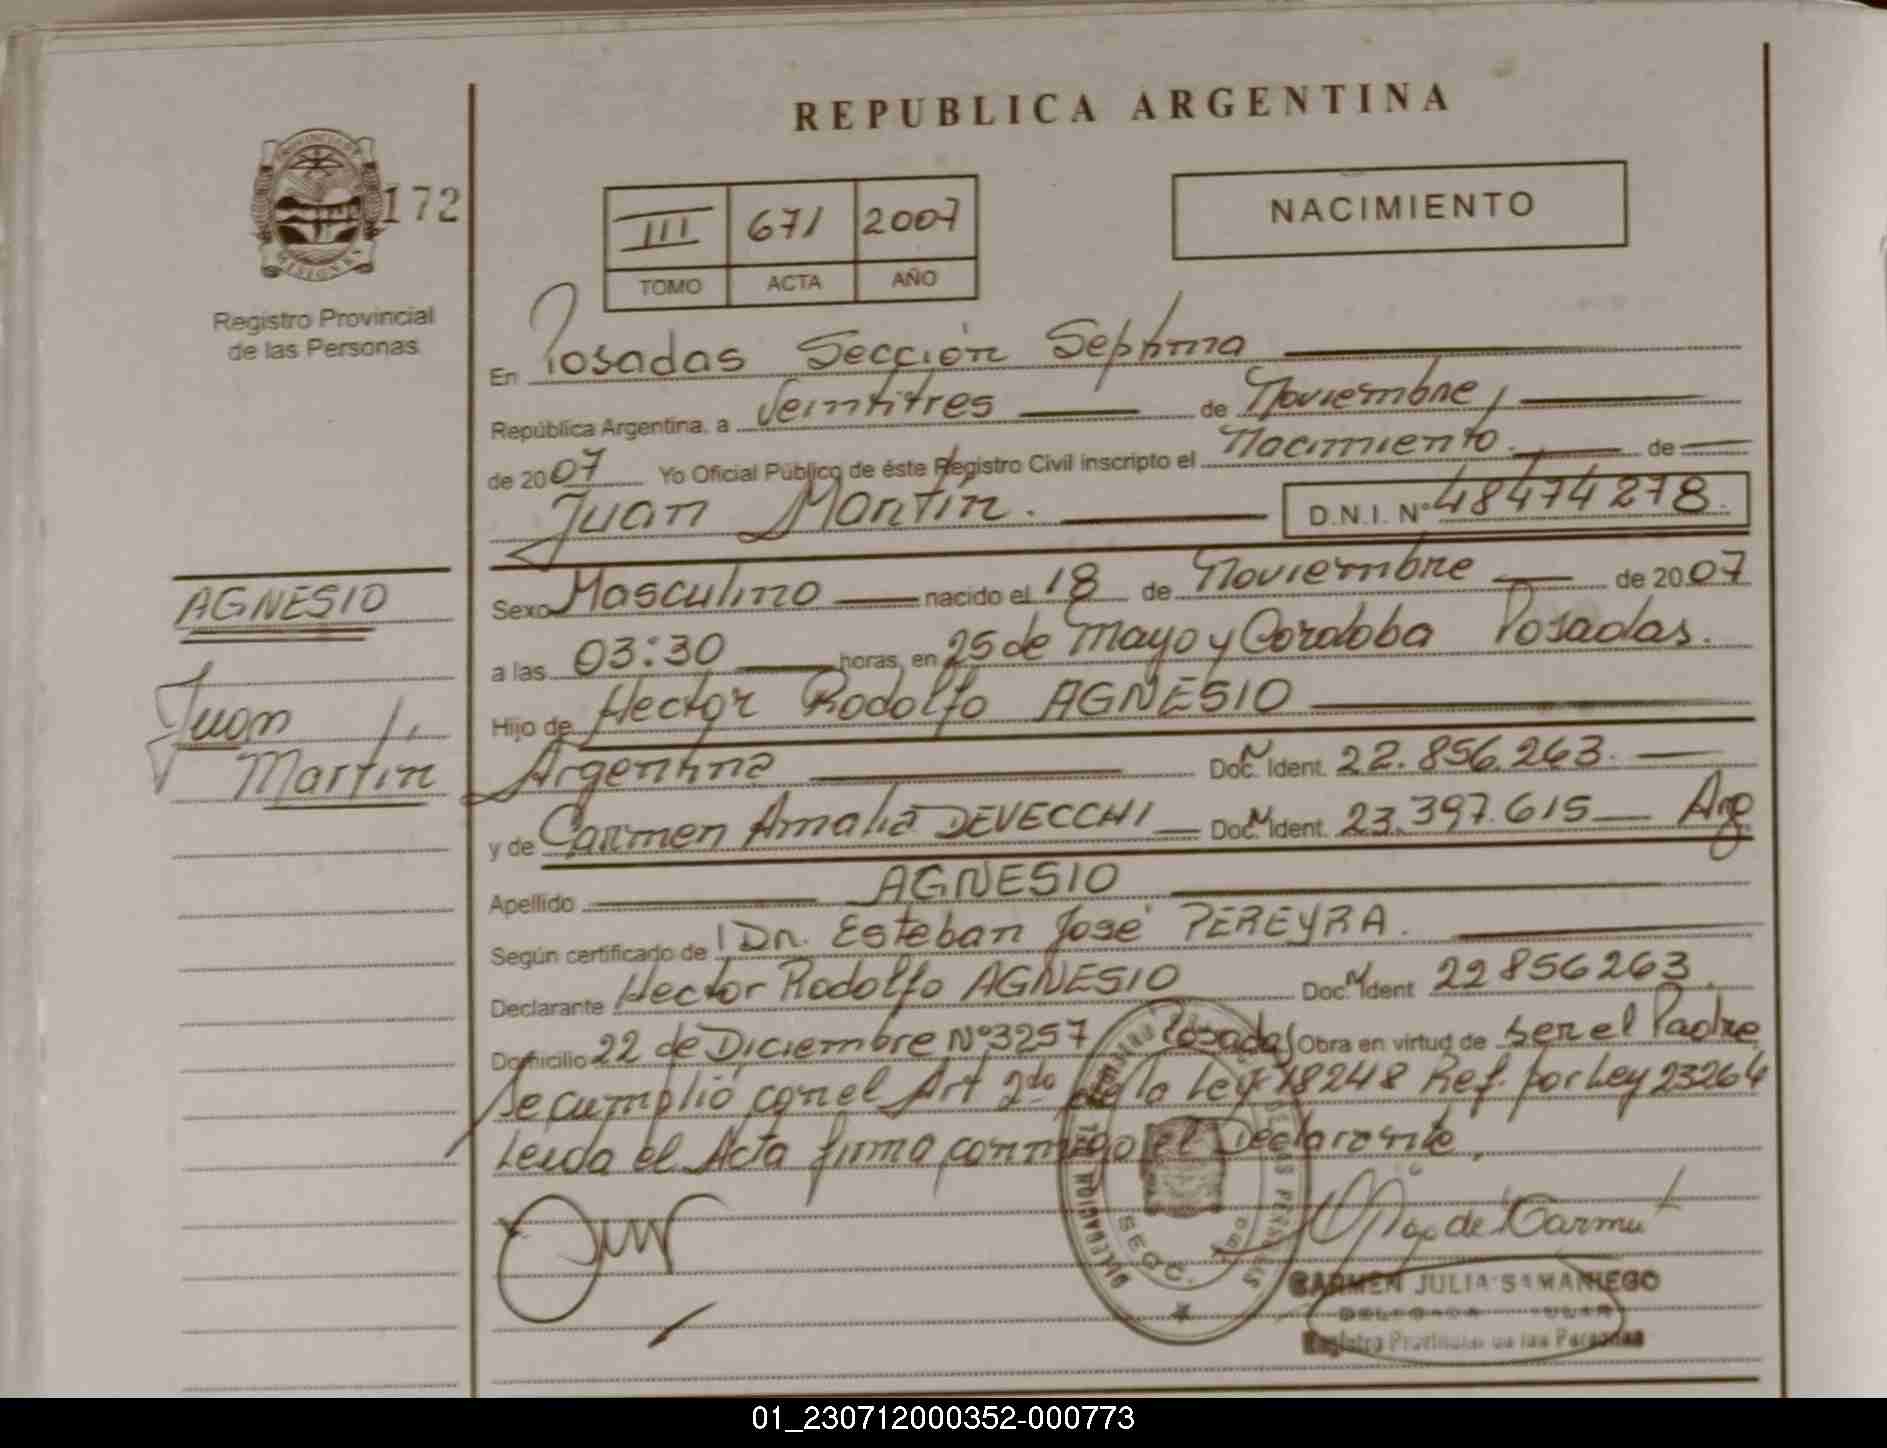 REPUBLICA ARGENTINA
PROVINCIA DE
MISIONES
172
Registro Provincial
de las Personas
III 671 2007
TOMO ACTA AÑO
NACIMIENTO
En Posadas Sección Septima
República Argentina, a Veintitres de Noviembre,
de 2007 Yo Oficial Público de éste Registro Civil inscripto el Nacimiento. de
Juan Martín. D.N.I. Nº 48474278.
AGNESIO
Juan
Martín
Sexo Masculino nacido el 18 de Noviembre de 2007
a las 03:30 horas, en 25 de Mayo y Cordoba Posadas.
Hijo de Hector Rodolfo AGNESIO
Argentina Doc. Ident. 22.856.263.
y de Carmen Amalia DEVECCHI Doc. Ident. 23.397.615 Arg
Apellido AGNESIO
Según certificado de Dr. Esteban José PEREYRA.
Declarante Hector Rodolfo AGNESIO Doc. Ident 22856263.
Domicilio 22 de Diciembre Nº3257 Posadas Obra en virtud de ser el Padre
Se cumplió con el Art 2do de la Ley 18248 Ref. por Ley 23264
Leida el Acta firma conmigo el Declarante.
SECC.
CARMEN JULIA SAMANIEGO
Registro Provincial de las Personas
01_230712000352-000773